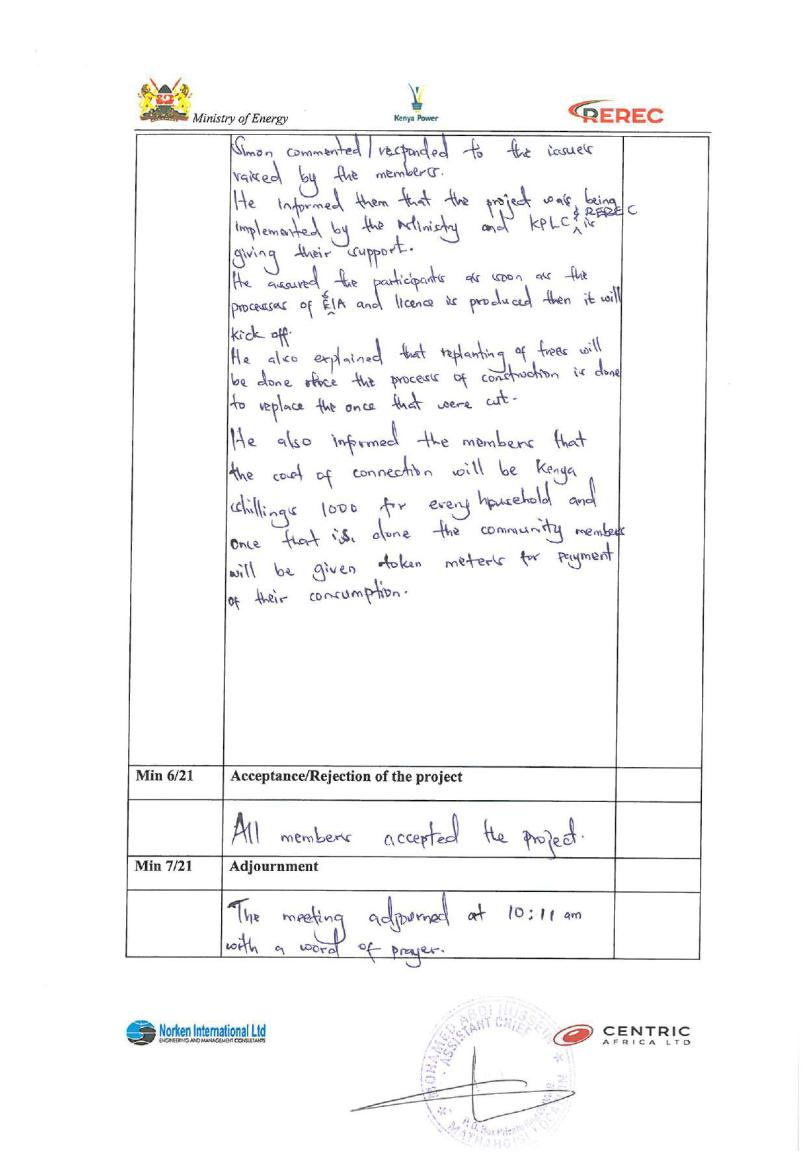 Ministry of Energy
Kenya Power
REREC
Simon commented / responded to the issues
raised by the members.
He informed them that the project was being
implemented by the Ministry and KPLC & REREC is
giving their support.
He assured the participants as soon as the
processes of EIA and licence is produced then it will
kick off.
He also explained that replanting of trees will
be done once the process of construction is done
to replace the once that were cut.
He also informed the members that
the cost of connection will be Kenya
shillings 1000 for every household and
once that is done the community members
will be given token meters for payment
of their consumption.
Min 6/21 Acceptance/Rejection of the project
All members accepted the project.
Min 7/21 Adjournment
The meeting adjourned at 10:11 am
with a word of prayer.
Norken International Ltd
ENGINEERING AND MANAGEMENT CONSULTANTS
MOHAMED ABDI HUSSEIN
ASSISTANT CHIEF
P.O. Box Private
LOCATION
CENTRIC
AFRICA LTD